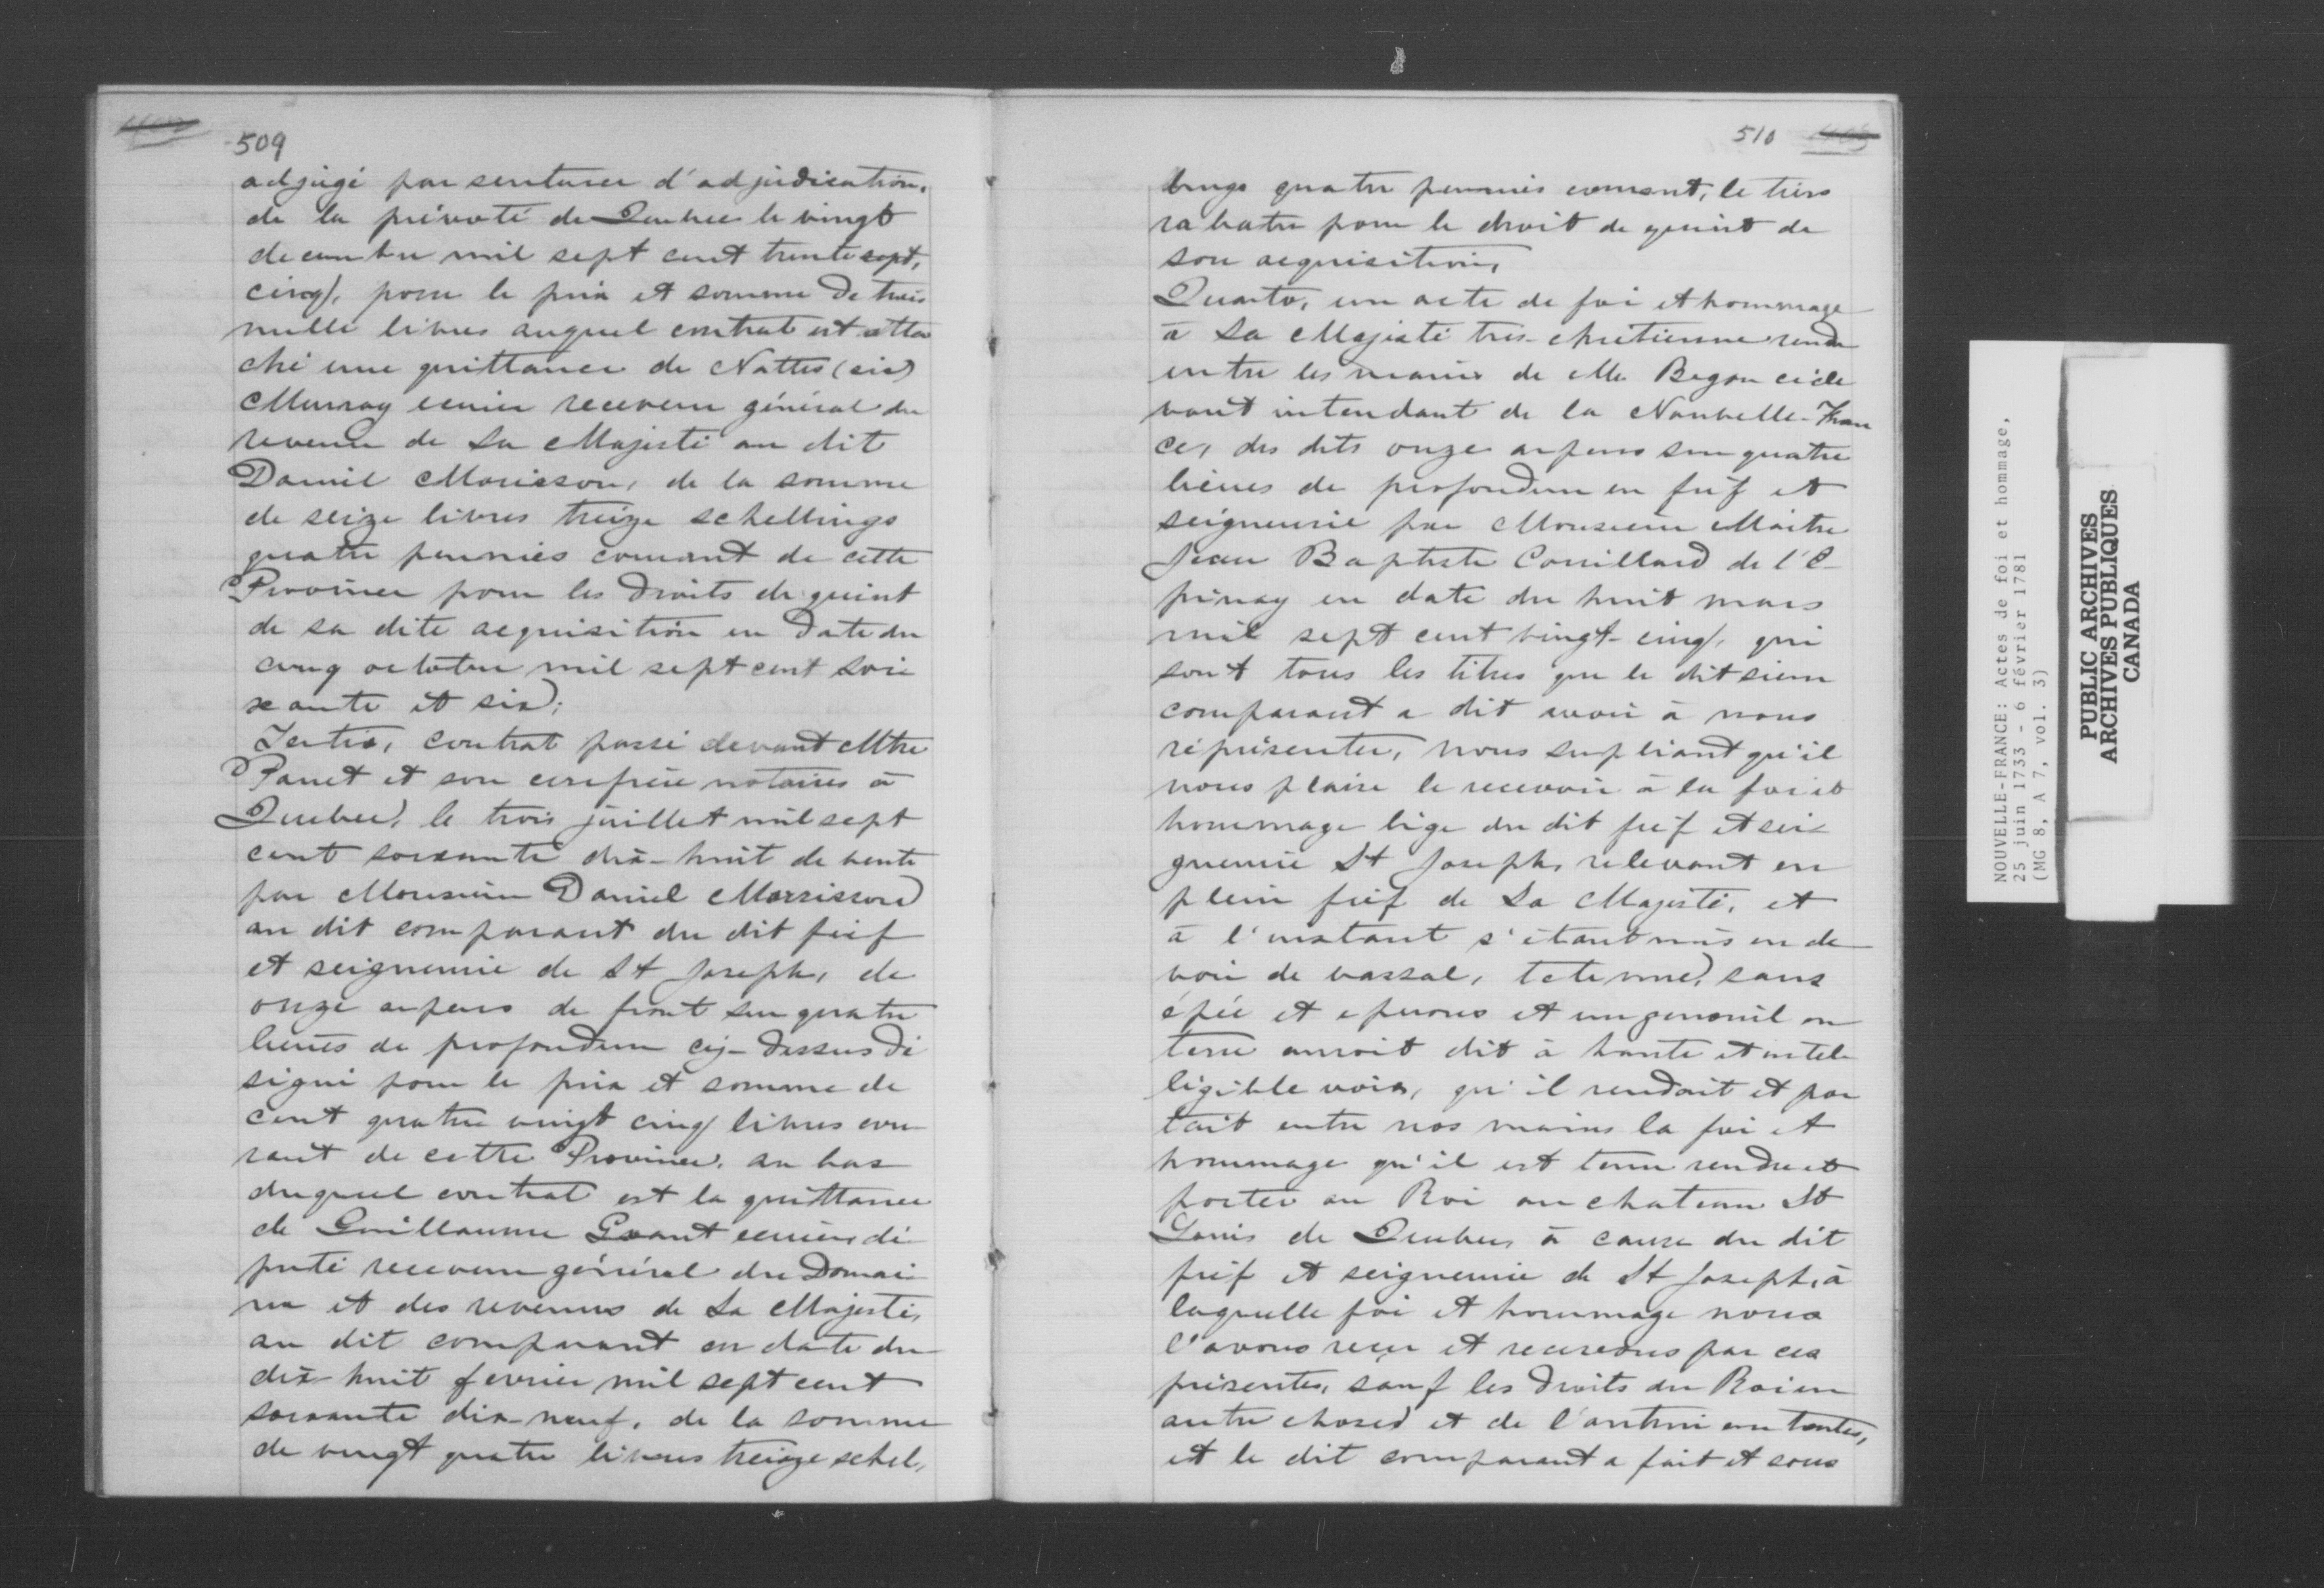 509
adjugé par sentence d'adjudication,
de la prévoté de Quebec le vingt
decembre mil sept cent trente sept,
cinq, pour le prix et somme de trois
mille livres auquel contrat est atta
ché une quittance de Nattes (sic)
Murray ecuier receveur général du
revenu de Sa Majesté au dit
Daniel Morisson, de la somme
de seize livres treize schellings
quatre pennies courant de cette
Province pour les droits de quint
de sa dite acquisition en date du
cinq octobre mil sept cent soix
xante et six;
Tertio, contrat passé devant Mtre
Panet et son confrère notaires à
Quebec, le trois juillet mil sept
cent soixante dix-huit de vente
par Monsieur Daniel Morrisson
au dit comparant du dit fief
et seigneurie de St Joseph, de
onze arpens de front sur quatre
lieues de profondeur cy-dessus dé
signé pour le prix et somme de
cent quatre vingt cinq livres cou
rant de cette Province, au bas
duquel contrat est la quittance
de Guillaume Grant ecuier dé
puté receveur général du Domai
ne et des revenus de Sa Majesté,
au dit comparant en date du
dix-huit fevrier mil sept cent
soixante dix-neuf, de la somme
de vingt quatre livres treize schel,
510
lings quatre pennies courant, le tiers
rabatu pour le droit de quint de
son acquisition,
Quarto, un acte de foi et hommage
à Sa Majesté très-chrétienne rendu
entre les mains de Mr Begon cide
vant intendant de la Nouvelle-Fran
ce, des dits onze arpens sur quatre
lieues de profondeur en fief et
seigneurie par Monsieur Maitre
Jean Baptiste Couillard de l'E
pinay en date du huit mars
mil sept cent vingt-cinq, qui
sont tous les titres que le dit sieur
comparant a dit avoir à nous
réprésenter, nous supliant qu'il
nous plaise le recevoir à la foi et
hommage lige du dit fief et sei
gneurie St Joseph, relevant en
plein fief de Sa Majesté, et
à l'instant s'étant mis en de
voir de vassal, tete nue, sans
épée et eperons et un genouil en
terre auroit dit à haute et intel
ligible voix, qu'il rendoit et por
tait entre nos mains la foi et
hommage qu'il est tenu rendre et
porter au Roi au chateau St
Louis de Quebec, à cause du dit
fief et seigneurie de St Joseph, à
laquelle foi et hommage nous
l'avons reçu et recevons par ces
présentes, sauf les droits du Roi en
autre choses et de l'autrui en toutes,
et le dit comparant a fait et sous
NOUVELLE-FRANCE: Actes de foi et hommage,
25 juin 1733 - 6 février 1781
(MG 8, A 7, vol. 3)
PUBLIC ARCHIVES
ARCHIVES PUBLIQUES
CANADA